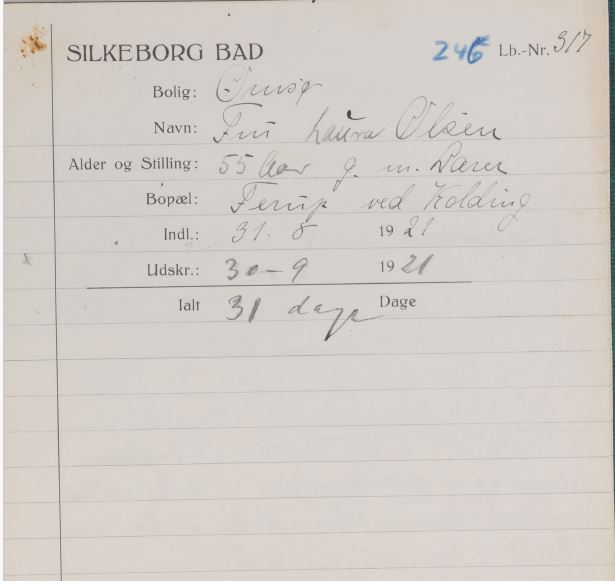 SILKEBORG BAD 246 Lb.-Nr. 317
Bolig: Ørnsø
Navn: Fru Laura Olsen
Alder og Stilling: 55 Aar g. m. Lærer
Bopæl: Ferup ved Kolding
Indl.: 31. 8 1921
Udskr.: 30-9 1921
Ialt 31 dage Dage